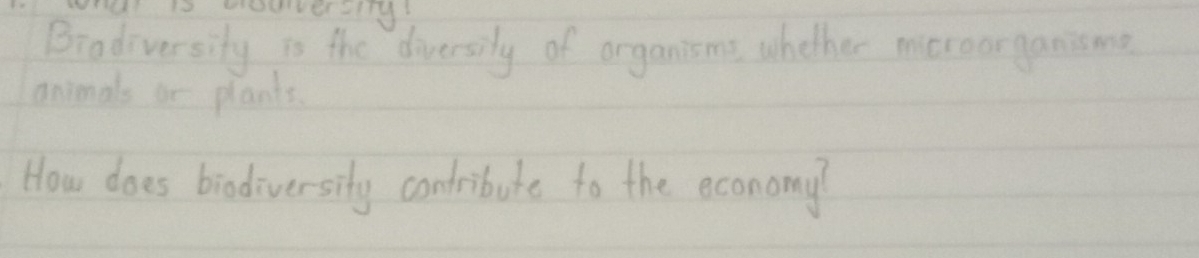 1. What is biodiversity?
Biodiversity is the diversity of organisms, whether microorganisms,
animals or plants.
How does biodiversity contribute to the economy?